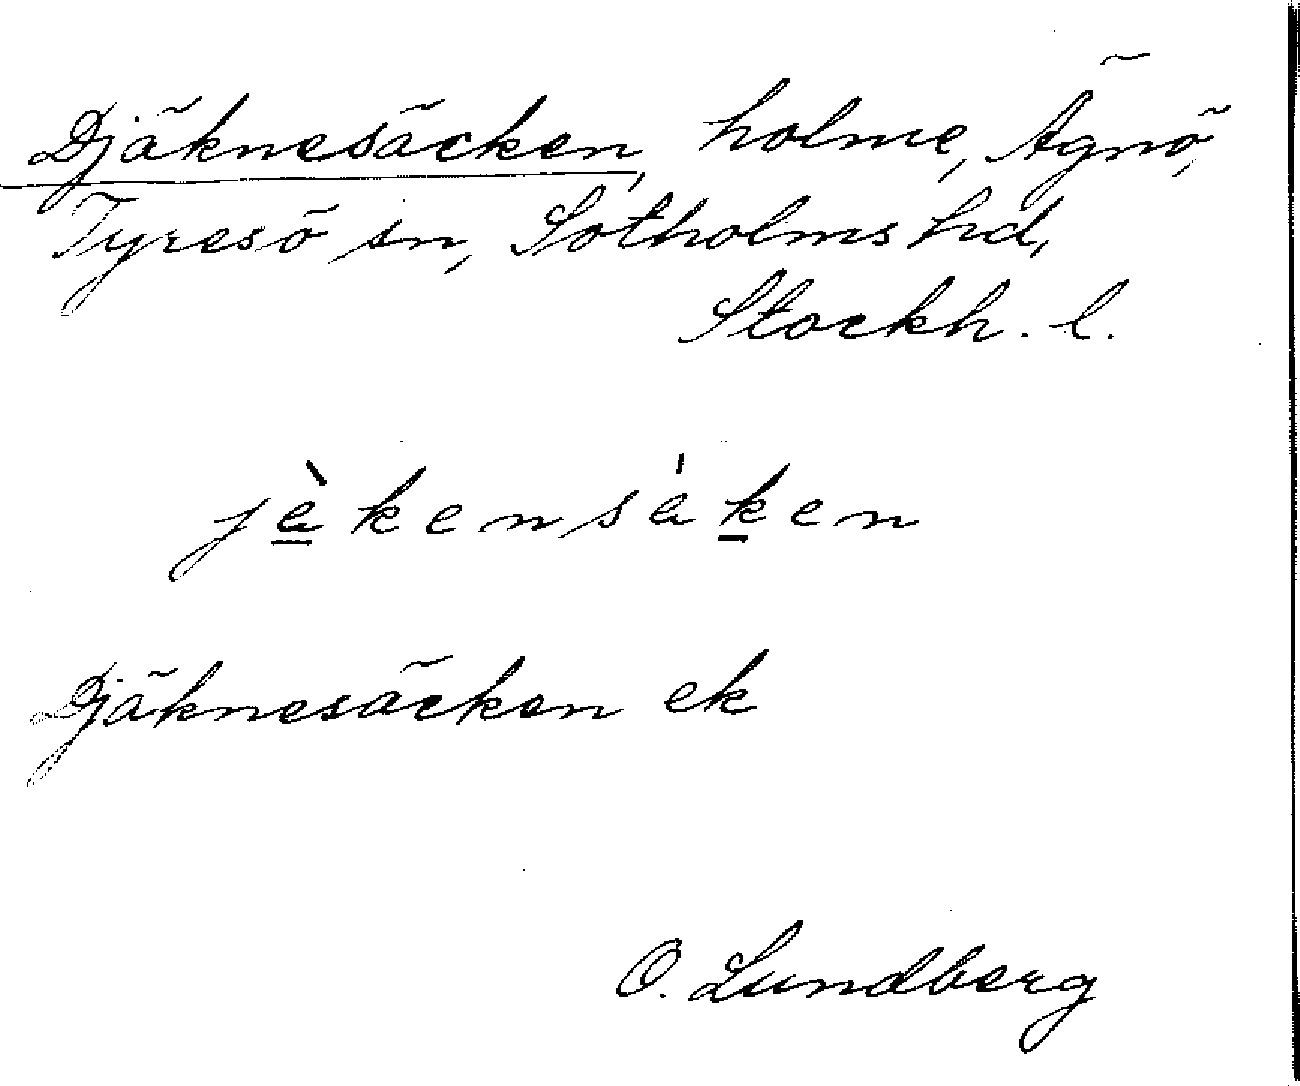 Djäknesäcken, holme, Ägnö,
Tyresö sn, Sotholms hd,
Stockh. l.
jä̀kensä́ken
Djäknesäcken ek
O. Lundberg